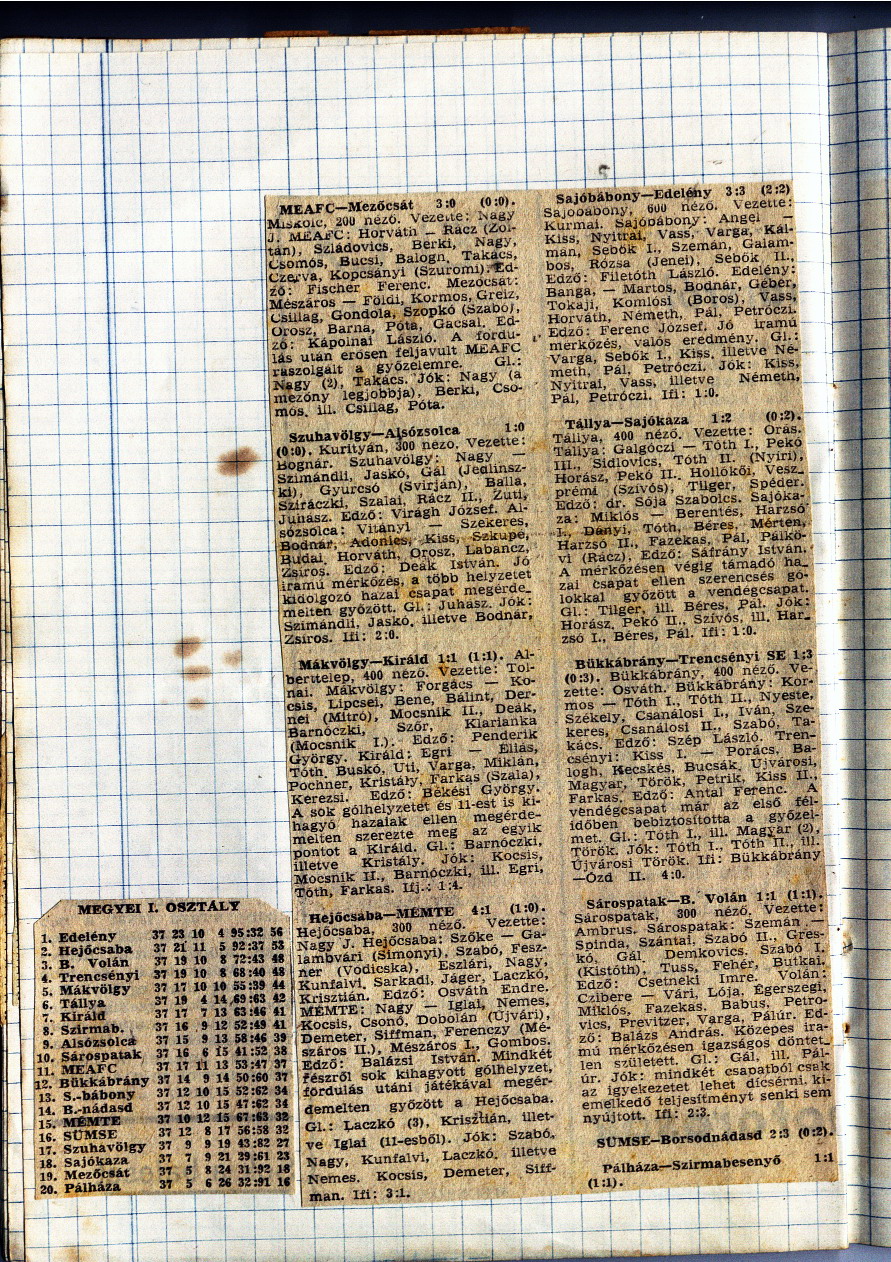 MEAFC—Mezőcsát 3:0 (0:0).
Miskolc, 200 néző. Vezette: Nagy
J. MEAFC: Horváth — Rácz (Zol-
tán), Szládovics, Berki, Nagy,
Csomós, Bucsi, Balogn, Takács,
Czerva, Kopcsányi (Szuromi). Ed-
ző: Fischer Ferenc. Mezőcsát:
Mészáros — Földi, Kormos, Greiz,
Csillag, Gondola, Szopkó (Szabó),
Orosz, Barna, Póta, Gacsal. Ed-
ző: Kápolnai László. A fordu-
lás után erősen feljavult MEAFC
rászolgált a győzelemre. Gl.:
Nagy (2), Takács. Jók: Nagy (a
mezőny legjobbja), Berki, Cso-
mós, ill. Csillag, Póta.
Szuhavölgy—Alsózsolca 1:0
(0:0). Kurityán, 300 néző. Vezette:
Bognár. Szuhavölgy: Nagy —
Szimándli, Jaskó, Gál (Jeglinsz-
ki), Gyurcsó (Svirján), Balla,
Sziráczki, Szalai, Rácz II., Zuti,
Juhász. Edző: Virágh József. Al-
sózsolca: Vitányi — Szekeres,
Bodnár, Adonics, Kiss, Szkupe,
Budai, Horváth, Orosz, Labancz,
Zsiros. Edző: Deák István. Jó
iramú mérkőzés, a több helyzetet
kidolgozó hazai csapat megérde-
melten győzött. Gl.: Juhász. Jók:
Szimándli, Jaskó, illetve Bodnár,
Zsiros. Ifi: 2:0.
Mákvölgy—Királd 1:1 (1:1). Al-
berttelep, 400 néző. Vezette: Tol-
nai. Mákvölgy: Forgács — Ko-
csis, Lipcsei, Bene, Bálint, Der-
nei (Mitró), Mocsnik II., Deák,
Barnóczki, Szőr, Klarianka
(Mocsnik I.). Edző: Penderik
György. Királd: Egri — Éliás,
Tóth, Buskó, Uti, Varga, Miklán,
Pochner, Kristály, Farkas (Szala),
Kerezsi. Edző: Békési György.
A sok gólhelyzetet és 11-est is ki-
hagyó hazaiak ellen megérde-
melten szerezte meg az egyik
pontot a Királd. Gl.: Barnóczki,
illetve Kristály. Jók: Kocsis,
Mocsnik II., Barnóczki, ill. Egri,
Tóth, Farkas. Ifj.: 1:4.
Hejőcsaba—MÉMTE 4:1 (1:0).
Hejőcsaba, 300 néző. Vezette:
Nagy J. Hejőcsaba: Szőke — Ga-
lambvári (Simonyi), Szabó, Fesz-
ner (Vodicska), Eszlári, Nagy,
Kunfalvi, Sarkadi, Jáger, Laczkó,
Krisztián. Edző: Osváth Endre.
MÉMTE: Nagy — Iglai, Nemes,
Kocsis, Csonó, Dobolán (Újvári),
Demeter, Siffman, Ferenczy (Mé-
száros II.), Mészáros I., Gombos.
Edző: Balázsi István. Mindkét
részről sok kihagyott gólhelyzet,
fordulás utáni játékával megér-
demelten győzött a Hejőcsaba.
Gl.: Laczkó (3), Krisztián, illet-
ve Iglai (11-esből). Jók: Szabó,
Nagy, Kunfalvi, Laczkó, illetve
Nemes, Kocsis, Demeter, Siff-
man. Ifi: 3:1.
Sajóbábony—Edelény 3:3 (2:2)
Sajóbábony, 600 néző. Vezette:
Kurmai. Sajóbábony: Angel —
Kiss, Nyitrai, Vass, Varga, Kál-
mán, Sebők I., Szemán, Galam-
bos, Rózsa (Jenei), Sebők II.,
Edző: Filetóth László. Edelény:
Banga, — Martos, Bodnár, Géber,
Tokaji, Komlósi (Boros), Vass,
Horváth, Németh, Pál, Petróczi.
Edző: Ferenc József. Jó iramú
mérkőzés, valós eredmény. Gl.:
Varga, Sebők I., Kiss, illetve Né-
meth, Pál, Petróczi. Jók: Kiss,
Nyitrai, Vass, illetve Németh,
Pál, Petróczi. Ifi: 1:0.
Tállya—Sajókaza 1:2 (0:2).
Tállya, 400 néző. Vezette: Orás.
Tállya: Galgóczi — Tóth I., Pekó
III., Sidlovics, Tóth II. (Nyíri),
Horász, Pekó II., Hollókői, Vesz-
prémi (Szívós), Tilger, Spéder.
Edző: dr. Sója Szabolcs. Sajóka-
za: Miklós — Berentés, Harzsó
I., Dányi, Tóth, Béres, Mérten,
Harzsó II., Fazekas, Pál, Pálkö-
vi (Rácz). Edző: Sáfrány István.
A mérkőzésen végig támadó ha-
zai csapat ellen szerencsés gó-
lokkal győzött a vendégcsapat.
Gl.: Tilger, ill. Béres, Pál. Jók:
Horász, Pekó II., Szívós, ill. Har-
zsó I., Béres, Pál. Ifi: 1:0.
Bükkábrány—Trencsényi SE 1:3
(0:3). Bükkábrány, 400 néző. Ve-
zette: Osváth. Bükkábrány: Kor-
mos — Tóth I., Tóth II., Nyeste,
Székely, Csanálosi I., Iván, Sze-
keres, Csanálosi II., Szabó, Ta-
kács. Edző: Szép László. Tren-
csényi: Kiss I. — Porács, Ba-
logh, Kecskés, Bucsák, Újvárosi,
Magyar, Török, Petrik, Kiss II.,
Farkas. Edző: Antal Ferenc. A
vendégcsapat már az első fél-
időben bebiztosította a győzel-
met. Gl.: Tóth I., ill. Magyar (2),
Török. Jók: Tóth I., Tóth II., ill.
Újvárosi Török. Ifi: Bükkábrány
—Ózd II. 4:0.
Sárospatak—B. Volán 1:1 (1:1).
Sárospatak, 300 néző. Vezette:
Ambrus. Sárospatak: Szemán —
Spinda, Szántai, Szabó II., Gres-
kó, Gál, Demkovics, Szabó I.
(Kistóth), Tuss, Fehér, Butkai.
Edző: Csetneki Imre. Volán:
Czibere — Vári, Lója, Égerszegi,
Miklós, Fazekas, Babus, Petro-
vics, Previtzer, Varga, Pálúr. Ed-
ző: Balázs András. Közepes ira-
mú mérkőzésen igazságos döntet-
len született. Gl.: Gál, ill. Pál-
úr. Jók: mindkét csapatból csak
az igyekezetet lehet dícsérni, ki-
emelkedő teljesítményt senki sem
nyújtott. Ifi: 2:3.
SÜMSE—Borsodnádasd 2:3 (0:2).
Pálháza—Szirmabesenyő 1:1
(1:1).
MEGYEI I. OSZTÁLY
1. Edelény 37 23 10 4 95:32 56
2. Hejőcsaba 37 21 11 5 92:37 53
3. B. Volán 37 19 10 8 72:43 48
4. Trencsényi 37 19 10 8 68:40 48
5. Mákvölgy 37 17 10 10 55:39 44
6. Tállya 37 19 4 14 69:63 42
7. Királd 37 17 7 13 63:46 41
8. Szirmab. 37 16 9 12 52:49 41
9. Alsózsolca 37 15 9 13 58:46 39
10. Sárospatak 37 16 6 15 41:52 38
11. MEAFC 37 17 11 13 53:47 37
12. Bükkábrány 37 14 9 14 50:60 37
13. S.-bábony 37 12 10 15 52:62 34
14. B.-nádasd 37 12 10 15 47:62 34
15. MÉMTE 37 10 12 15 67:63 32
16. SÜMSE 37 12 8 17 56:58 32
17. Szuhavölgy 37 9 9 19 43:82 27
18. Sajókaza 37 7 9 21 39:61 23
19. Mezőcsát 37 5 8 24 31:92 18
20. Pálháza 37 5 6 26 32:91 16